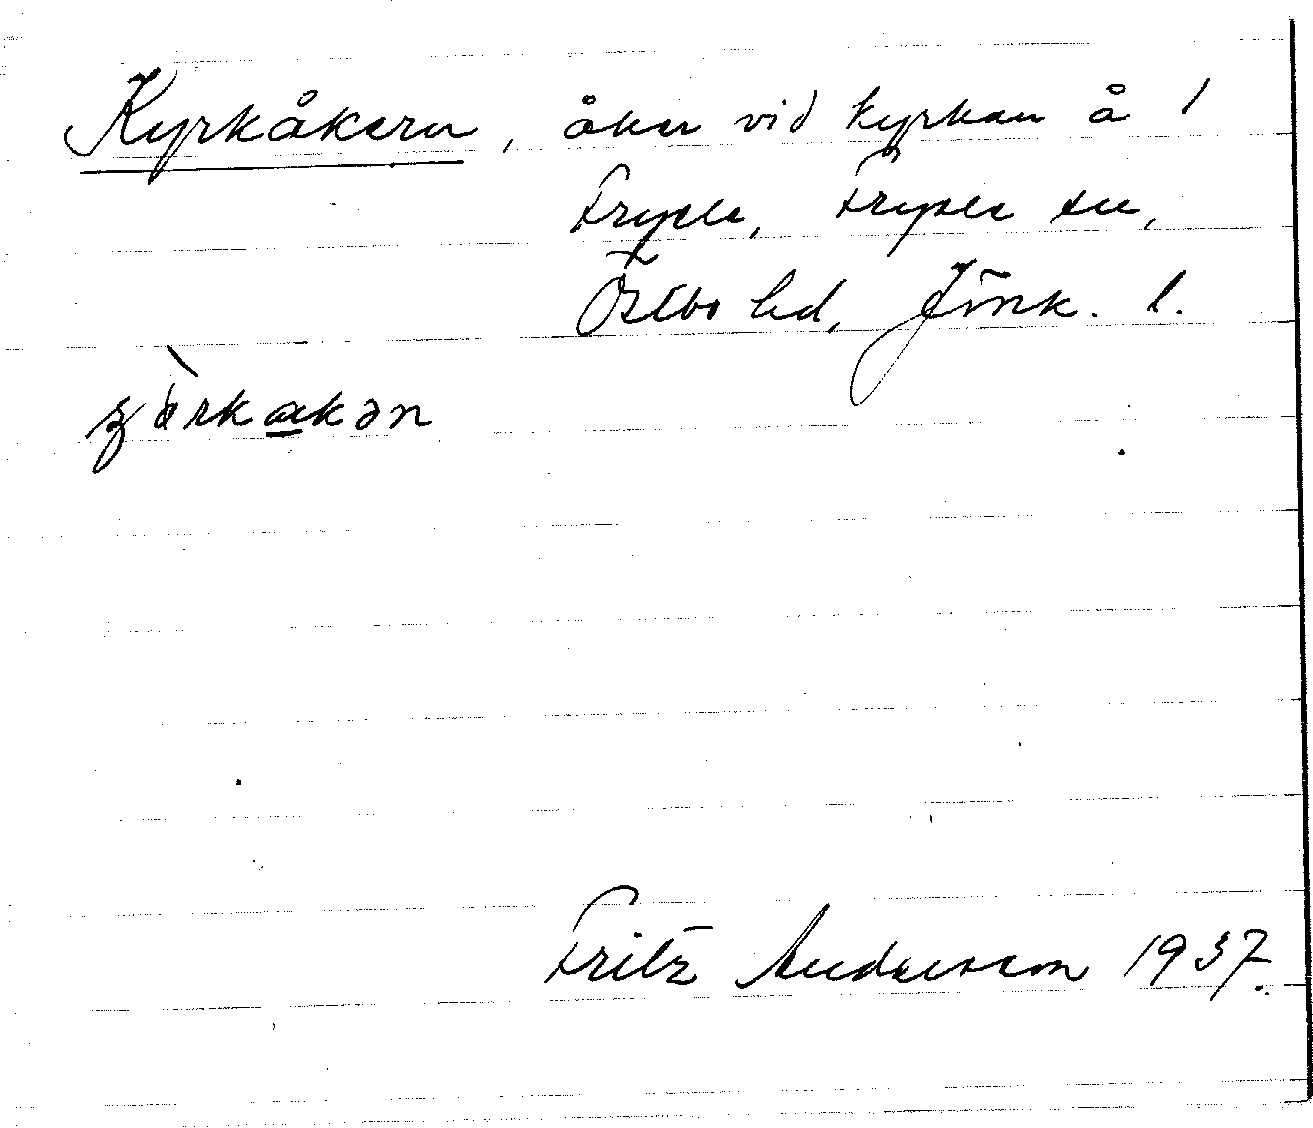 Kyrkåkern, åker vid kyrkan å 1
Fryele, Fryele sn,
Östbo hd, Jönk. l.
Fritz Andersson 1937.